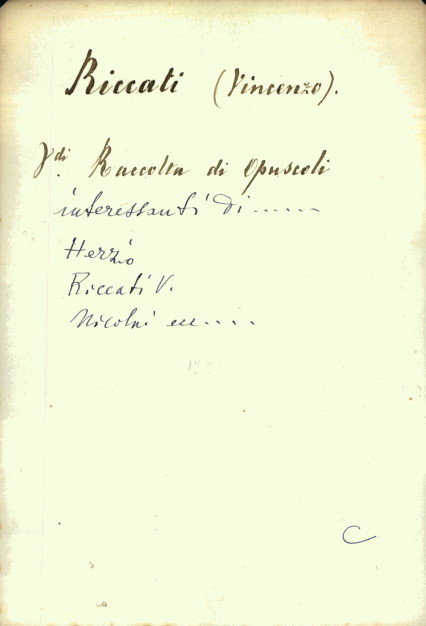 Riccati (Vincenzo).
Vdi. Raccolta di Opuscoli
interessanti di......
Herzio
Riccati V.
Nicolai ecc....
C